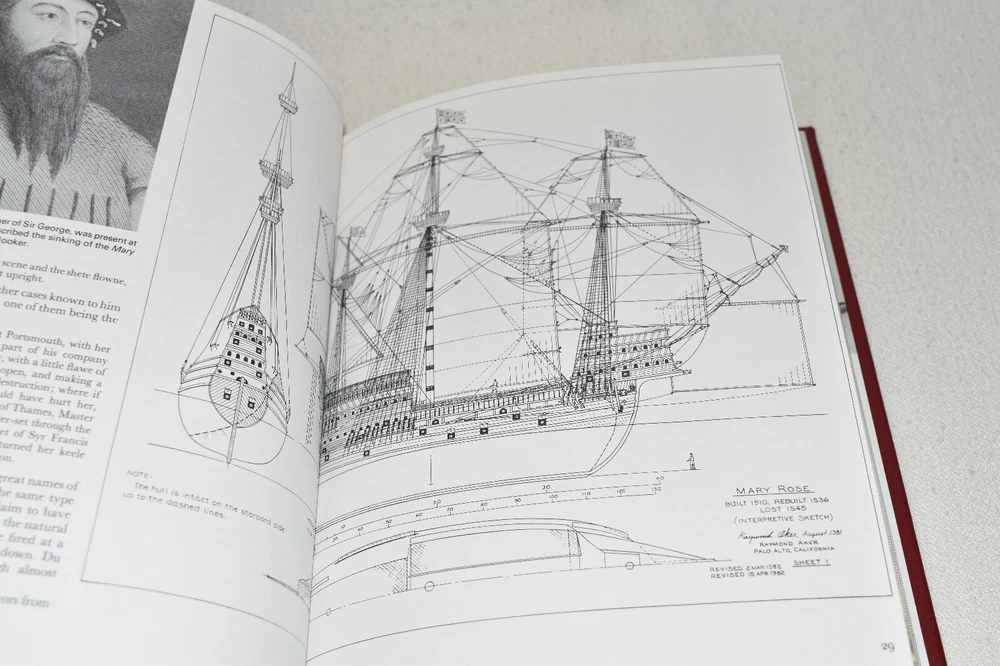 er of Sir George, was present at
scribed the sinking of the Mary
ooker.
scene and the shete flowne,
t upright.
ther cases known to him
one of them being the
t Portsmouth, with her
part of his company
, with a little flawe of
open, and making a
destruction; where if
uld have hurt her,
of Thames, Master
er-set through the
et of Syr Francis
turned her keele
on.
great names of
he same type
laim to have
the natural
e fired at a
down. Du
gh almost
vors from
NOTE:
The hull is intact on the starboard side
up to the dashed lines.
MARY ROSE
BUILT 1510, REBUILT 1536
LOST 1545
(INTERPRETIVE SKETCH)
Raymond Aker, August 1981
RAYMOND AKER
PALO ALTO, CALIFORNIA
REVISED 2 MAR 1982 SHEET 1
REVISED 15 APR 1982
29